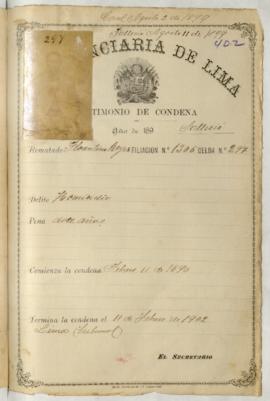 Agosto 2 de 1899
Falleció Agosto 11 de 1899
402
297
NCIARIA DE LIMA
TIMONIO DE CONDENA
Años de 189
Soltero
Rematado Florentino Reyes FILIACION N.º 1306 CELDA N.º 297
Delito Homicidio
Pena doce años
Comienza la condena Febro 11 de 1890
Termina la condena el 11 de Febro de 1902
Lima
EL SECRETARIO